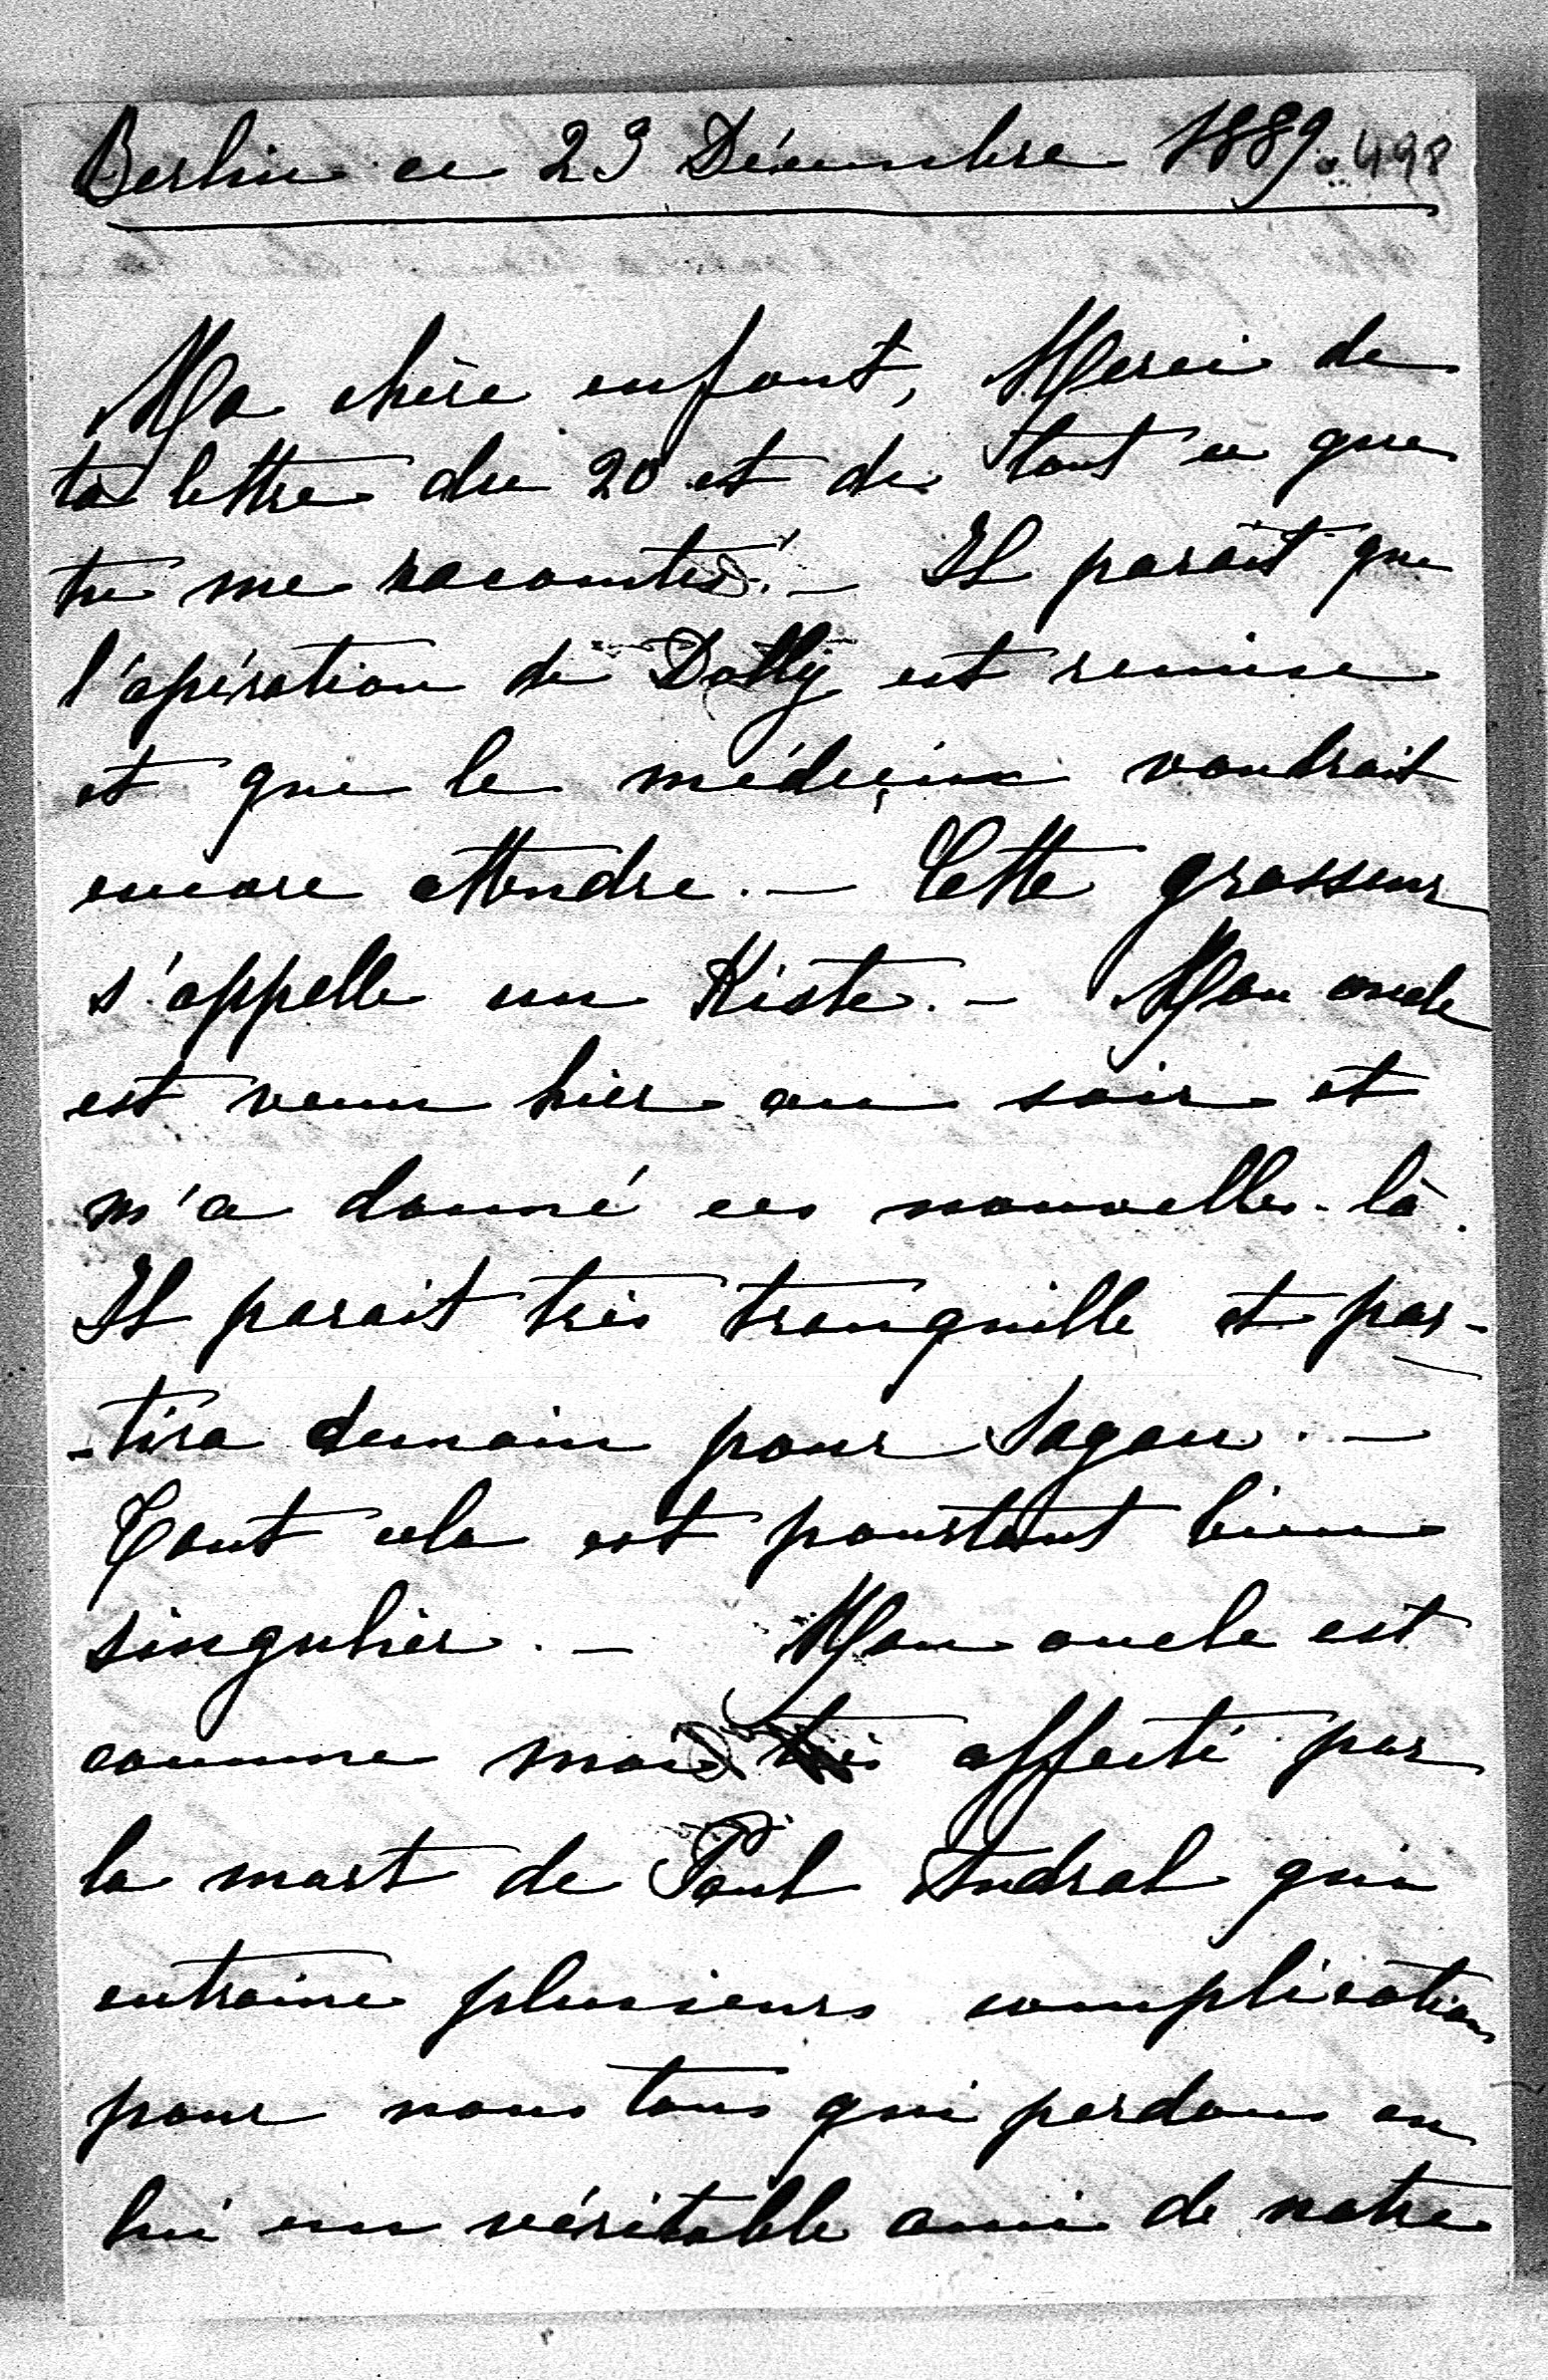 Berlin ce 23 Décembre 1889. 498
Ma chère enfant, Merci de
ta lettre du 20 et de tout ce que
tu me racontes. – Il parait que
l'opération de Dolly est remise
et que le médeçin voudrait
encore attendre. – Cette grosseur
s'appelle un Kiste. – Mon oncle
est venu hier au soir et
m'a donné ces nouvelles-là.
Il parait très tranquille et par-
-tira demain pour Sagan. –
Tout cela est pourtant bien
singulier. – Mon oncle est
comme moi très affecté par
la mort de Paul Andral qui
entraine plusieurs complications
pour nous tous qui perdons en
lui un véritable ami de notre